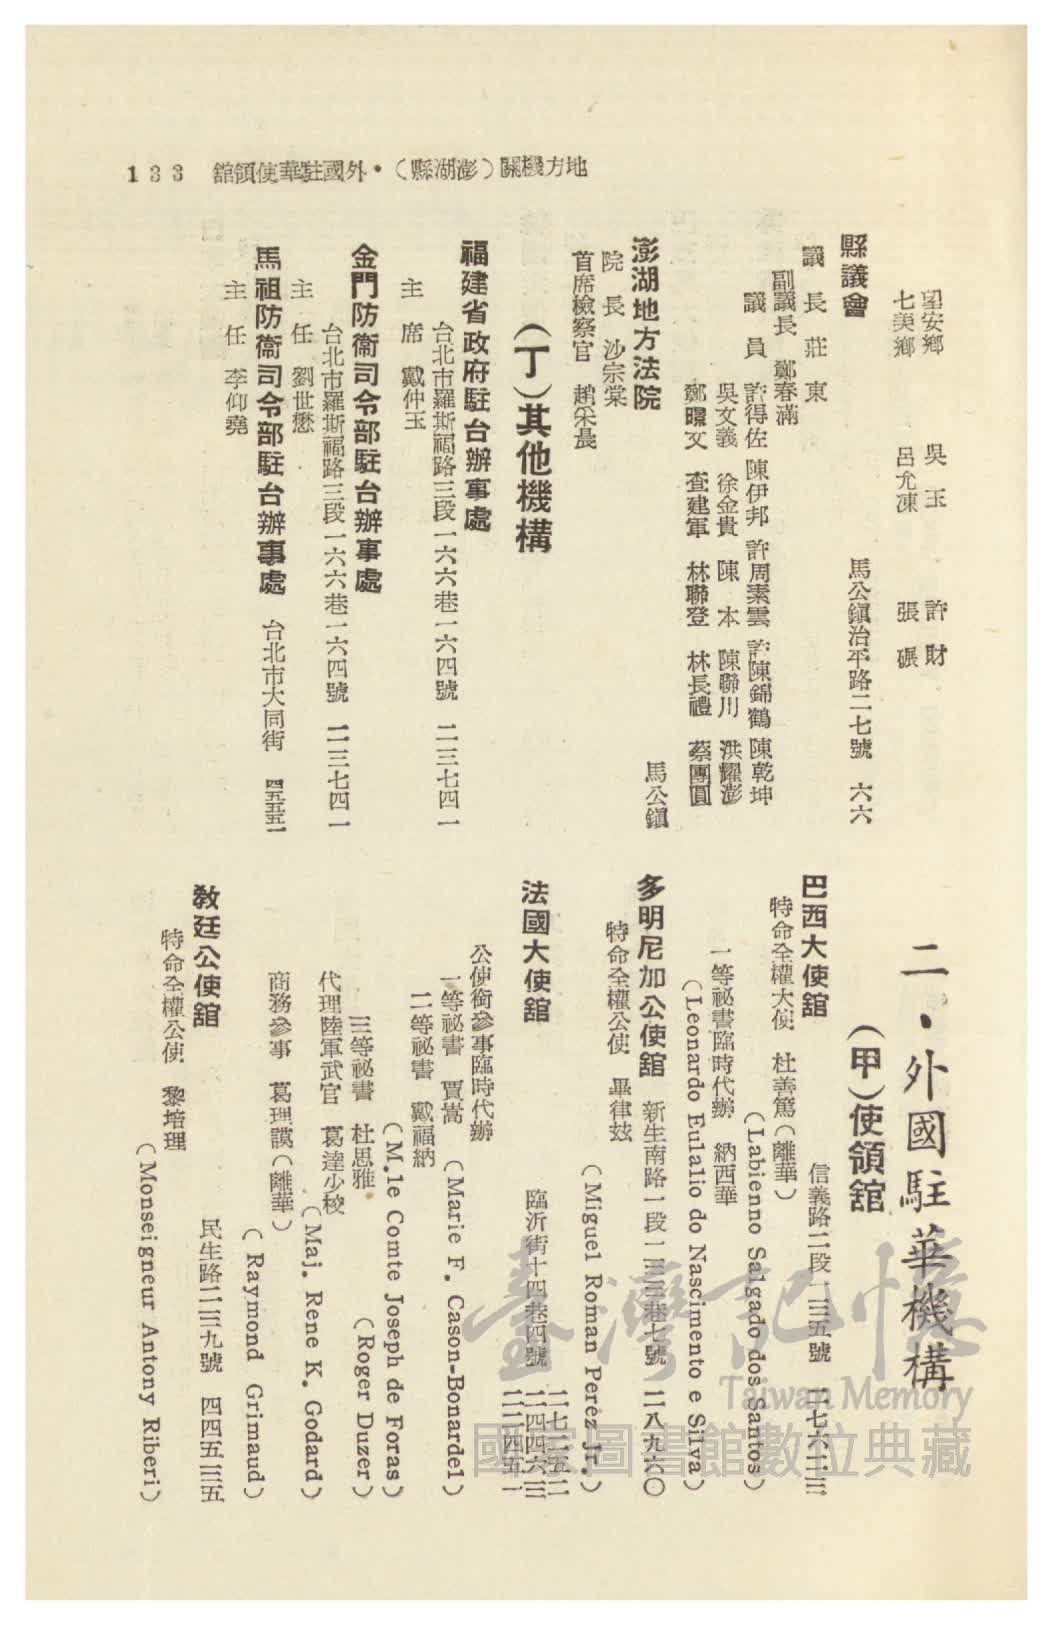 地方機關（澎湖縣）・外國駐華使領舘 133
望安鄉 吳玉 許財
七美鄉 呂允凍 張碾
縣議會 馬公鎭治平路二七號 六六
議長 莊東
副議長 鄭春滿
議員 許得佐 陳伊邦 許周素雲 許陳錦鶴 陳乾坤
吳文義 徐金貴 陳本 陳聯川 洪耀澎
鄭曝文 查建軍 林聯登 林長禮 蔡團圓
澎湖地方法院 馬公鎭
院長 沙宗棠
首席檢察官 趙采晨
（丁）其他機構
福建省政府駐台辦事處
台北市羅斯福路三段一六六巷一六四號 二三七四一
主席 戴仲玉
金門防衞司令部駐台辦事處
台北市羅斯福路三段一六六巷一六四號 二三七四一
主任 劉世懋
馬祖防衞司令部駐台辦事處 台北市大同街 四五五五一
主任 李仰堯
二・外國駐華機構
（甲）使領舘
巴西大使舘 信義路二段一三五號 二七六二三
特命全權大使 杜善篤（離華）
（Labienno Salgado dos Santos）
一等祕書臨時代辦 納西華
（Leonardo Eulalio do Nascimento e Silva）
多明尼加公使舘 新生南路一段一三三巷七號 二八九六〇
特命全權公使 畢律玆
（Miguel Roman Peréz Jr.）
二七二五二
法國大使舘 臨沂街十四巷四號 二四四六三
二二四五一
公使銜參事臨時代辦
一等祕書 賈嵩 （Marie F. Cason-Bonardel）
二等祕書 戴福納
（M.le Comte Joseph de Foras）
三等祕書 杜思雅 （Roger Duzer）
代理陸軍武官 葛達少校
（Maj. Rene K. Godard）
商務參事 葛理謨（離華）
（Raymond Grimaud）
教廷公使舘 民生路二三九號 四四五三五
特命全權公使 黎培理
（Monseigneur Antony Riberi）
臺灣記憶
Taiwan Memory
國家圖書館數位典藏